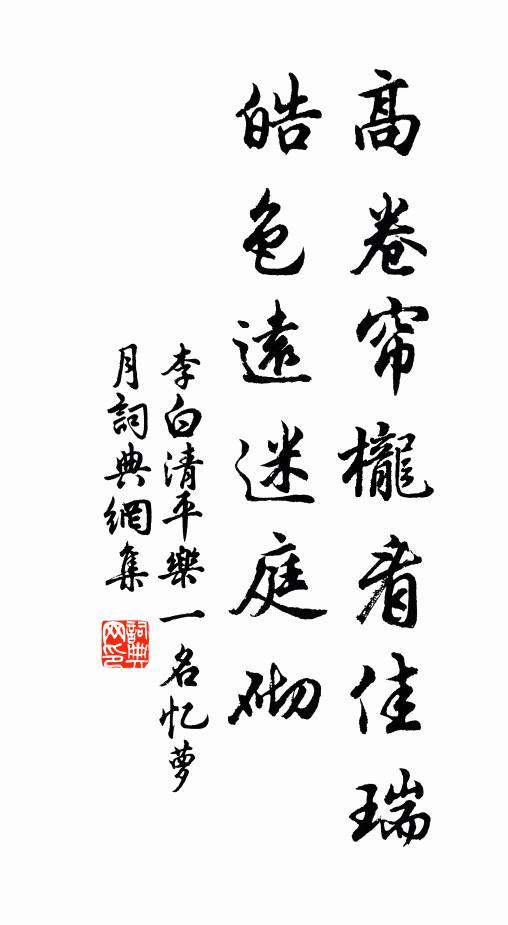 高卷帘櫳看佳瑞
皓色遠迷庭砌
李白清平樂一名忆萝
月詞典網集
詞典网印